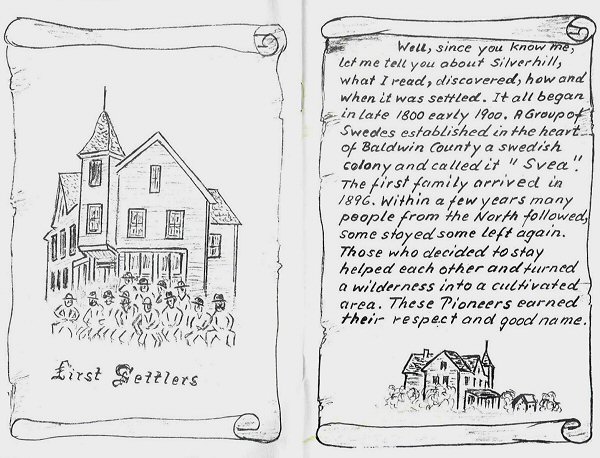 First Settlers
Well, since you know me,
let me tell you about Silverhill,
what I read, discovered, how and
when it was settled. It all began
in late 1800 early 1900. A Group of
Swedes established in the heart
of Baldwin County a swedish
colony and called it "Svea".
The first family arrived in
1896. Within a few years many
people from the North followed,
some stayed some left again.
Those who decided to stay
helped each other and turned
a wilderness into a cultivated
area. These Pioneers earned
their respect and good name.